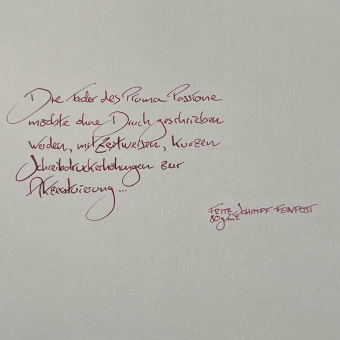 Die Feder des Pruma Passione
möchte ohne Druck geschrieben
werden, mit zeitweisen, kurzen
Schreibdruckerhöhungen zur
Akzentuierung...
FRITZ SCHIMPF FEINPOST
80g/m²